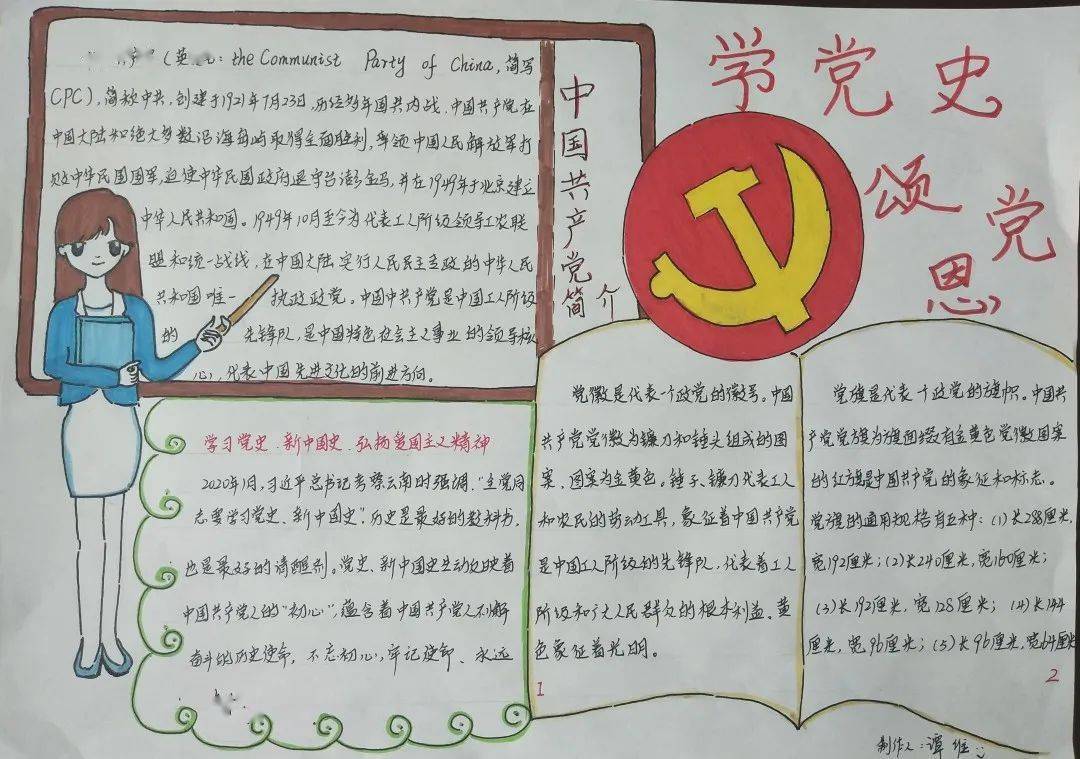 学党史
颂党恩
中国共产党简介
产(英 : the Communist Party of China, 简写
CPC), 简称中共, 创建于1921年7月23日, 历经数年国共内战, 中国共产党在
中国大陆和绝大多数沿海岛屿取得全面胜利, 率领中国人民解放军打
败中华民国国军, 迫使中华民国政府退守台澎金马, 并在1949年于北京建立
中华人民共和国。1949年10月至今为代表工人阶级领导工农联
盟和统一战线, 在中国大陆实行人民民主专政的中华人民
共和国唯一 执政政党。中国中共产党是中国工人阶级
的 先锋队, 是中国特色社会主义事业的领导核
心, 代表中国先进文化的前进方向。
学习党史、新中国史、弘扬爱国主义精神
2020年1月, 习近平总书记考察云南时强调, "全党同
志要学习党史、新中国史", 历史是最好的教科书,
也是最好的清醒剂。党史、新中国史生动反映着
中国共产党人的"初心", 蕴含着中国共产党人不懈
奋斗的历史使命, 不忘初心, 牢记使命、永远
党徽是代表一个政党的徽号。中国
共产党党徽为镰刀和锤头组成的图
案, 图案为金黄色。锤子、镰刀代表工人
和农民的劳动工具, 象征着中国共产党
是中国工人阶级的先锋队, 代表着工人
阶级和广大人民群众的根本利益。黄
色象征着光明。
1
党旗是代表一个政党的旗帜。中国共
产党党旗为旗面缀有金黄色党徽图案
的红旗是中国共产党的象征和标志。
党旗的通用规格有五种: (1)长288厘米,
宽192厘米; (2)长240厘米, 宽160厘米;
(3)长192厘米, 宽128厘米; (4)长144
厘米, 宽96厘米; (5)长96厘米, 宽64厘米
2
制作人: 谭维